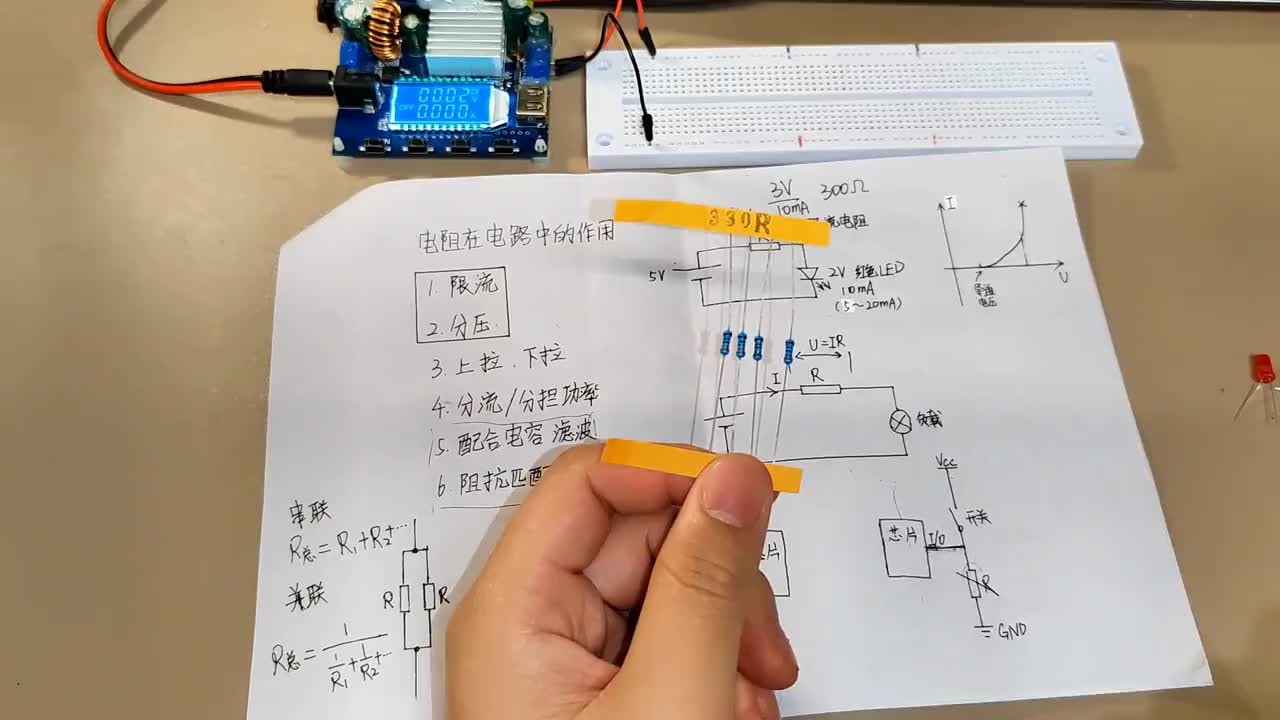 0002
OFF 0000
电阻在电路中的作用
1. 限流
2. 分压
3. 上拉、下拉
4. 分流/分担功率
5. 配合电容 滤波
6. 阻抗匹配
串联
R总=R1+R2+…
并联
R总=1/(1/R1+1/R2+…)
R R
3V/10mA 300Ω
330R
流电阻
5V
2V 红色LED
10mA
(5~20mA)
I
U
导通
电压
U=IR
I
R
负载
片
Vcc
开关
芯片
I/O
R
GND